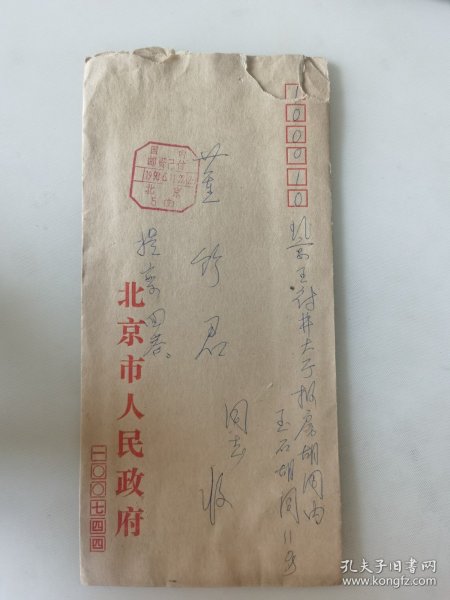 100010
北京王府井大街报房胡同内
玉石胡同11号
董竹君
同志收
提案回答
国内
邮资已付
北京
北京市人民政府
一〇〇七四四
孔夫子旧书网
www.kongfz.com